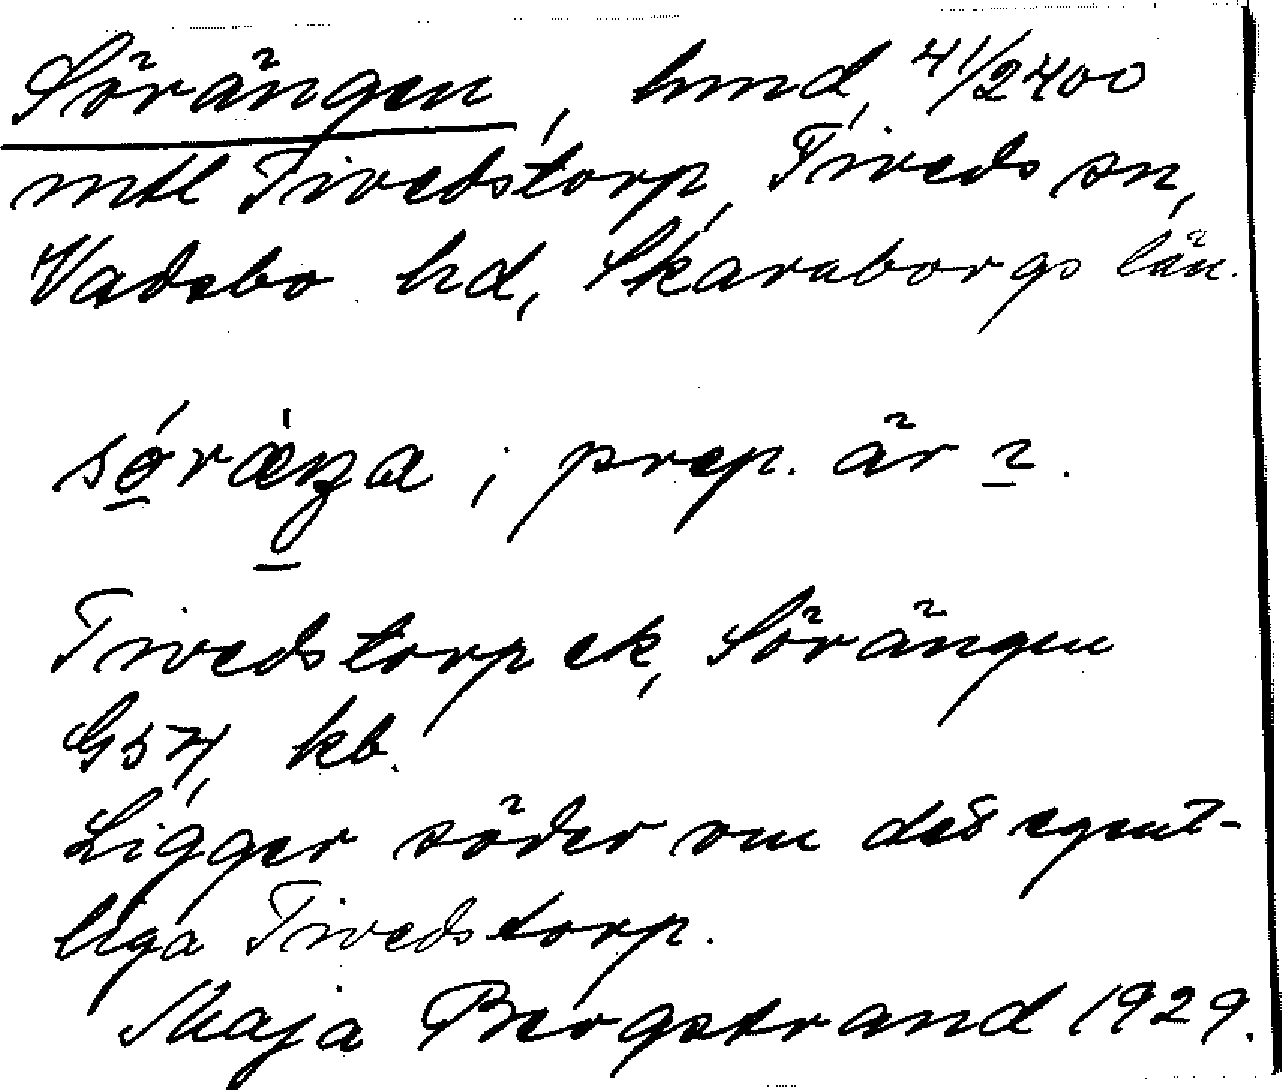 Sörängen, hmd, 41/2400
mtl Tivedstorp, Tiveds sn,
Vadsbo hd, Skaraborgs län.
söräŋa; prep. är
Tivedstorp ek, Sörängen
G57, kb.
Ligger söder om det egent-
liga Tivedstorp.
Maja Bergstrand 1929.